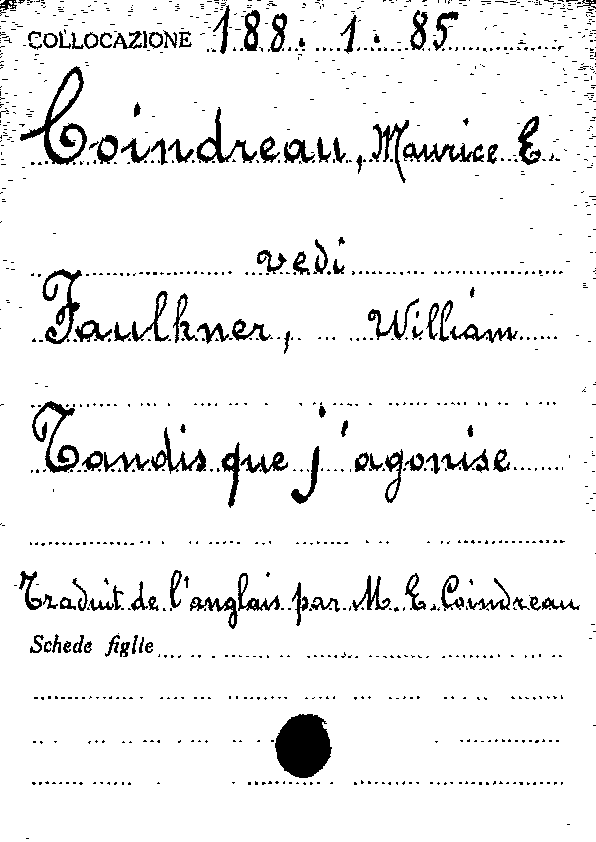 COLLOCAZIONE 188. 1. 85
Coindreau, Maurice E.
vedi
Faulkner, William
Tandis que j'agonise
Traduit de l'anglais par M. E. Coindreau
Schede figlie